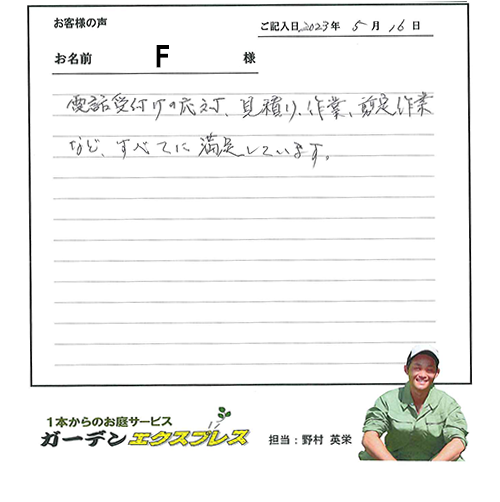 お客様の声
ご記入日 2023年 5月 16日
お名前 F 様
電話受付けの応対、見積り、作業、剪定作業
など、すべてに満足しています。
1本からのお庭サービス
ガーデンエクスプレス
担当：野村 英栄